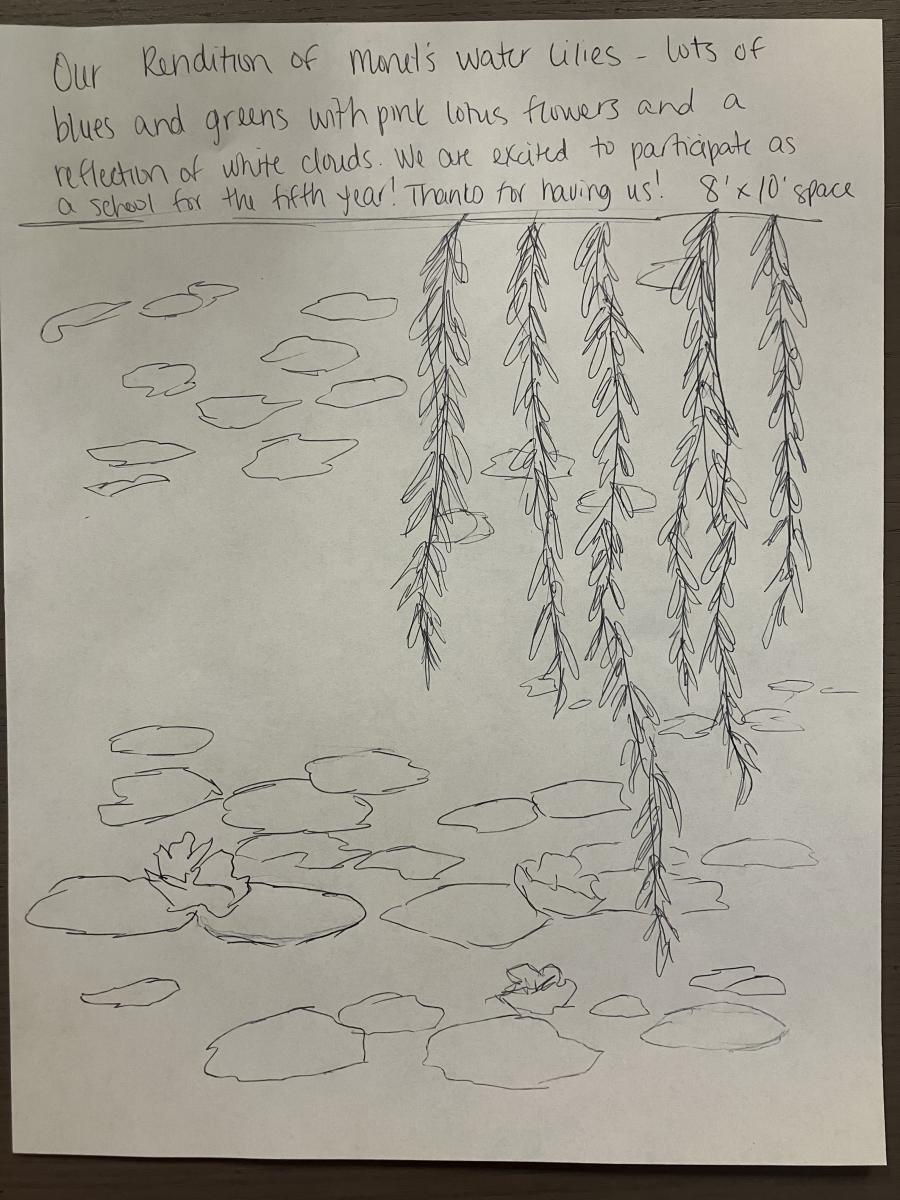 Our Rendition of Monet's Water Lilies - Lots of
blues and greens with pink lotus flowers and a
reflection of white clouds. We are excited to participate as
a school for the fifth year! Thanks for having us! 8'x10' space